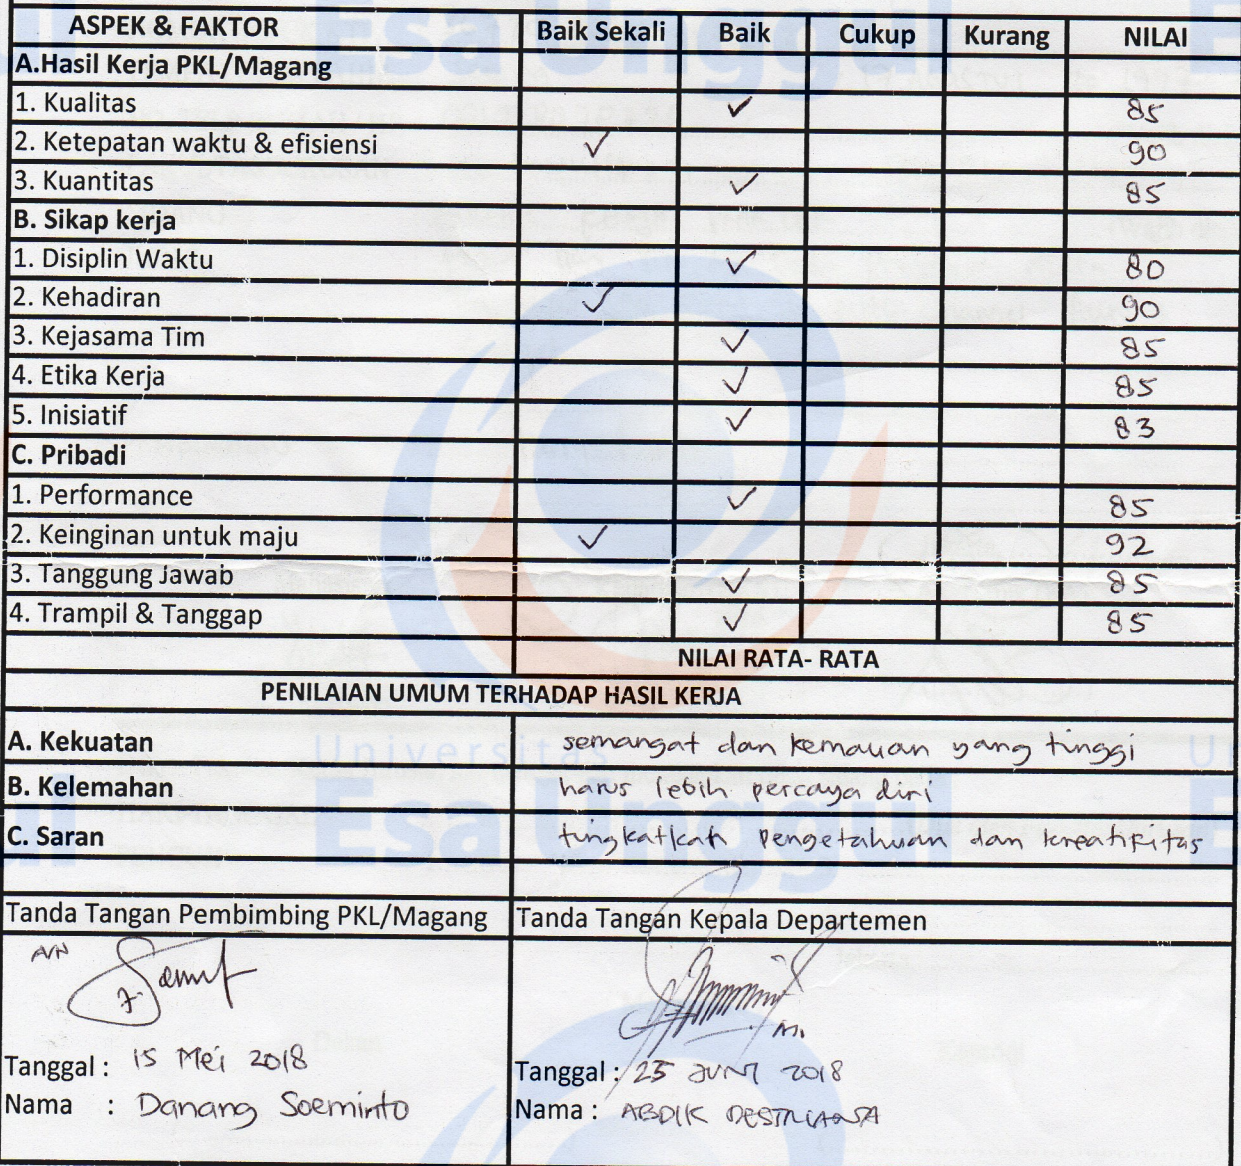 ASPEK & FAKTOR Baik Sekali Baik Cukup Kurang NILAI
A.Hasil Kerja PKL/Magang
1. Kualitas ✓ 85
2. Ketepatan waktu & efisiensi ✓ 90
3. Kuantitas ✓ 85
B. Sikap kerja
1. Disiplin Waktu ✓ 80
2. Kehadiran ✓ 90
3. Kejasama Tim ✓ 85
4. Etika Kerja ✓ 85
5. Inisiatif ✓ 83
C. Pribadi
1. Performance ✓ 85
2. Keinginan untuk maju ✓ 92
3. Tanggung Jawab ✓ 85
4. Trampil & Tanggap ✓ 85
NILAI RATA- RATA
PENILAIAN UMUM TERHADAP HASIL KERJA
A. Kekuatan semangat dan kemauan yang tinggi
B. Kelemahan harus lebih percaya diri
C. Saran tingkatkan pengetahuan dan kreatifitas
Universitas
Esa Unggul
Tanda Tangan Pembimbing PKL/Magang Tanda Tangan Kepala Departemen
A/N
Tanggal : 15 Mei 2018 Tanggal : 25 JUNI 2018
Nama : Danang Soeminto Nama : ABDIK